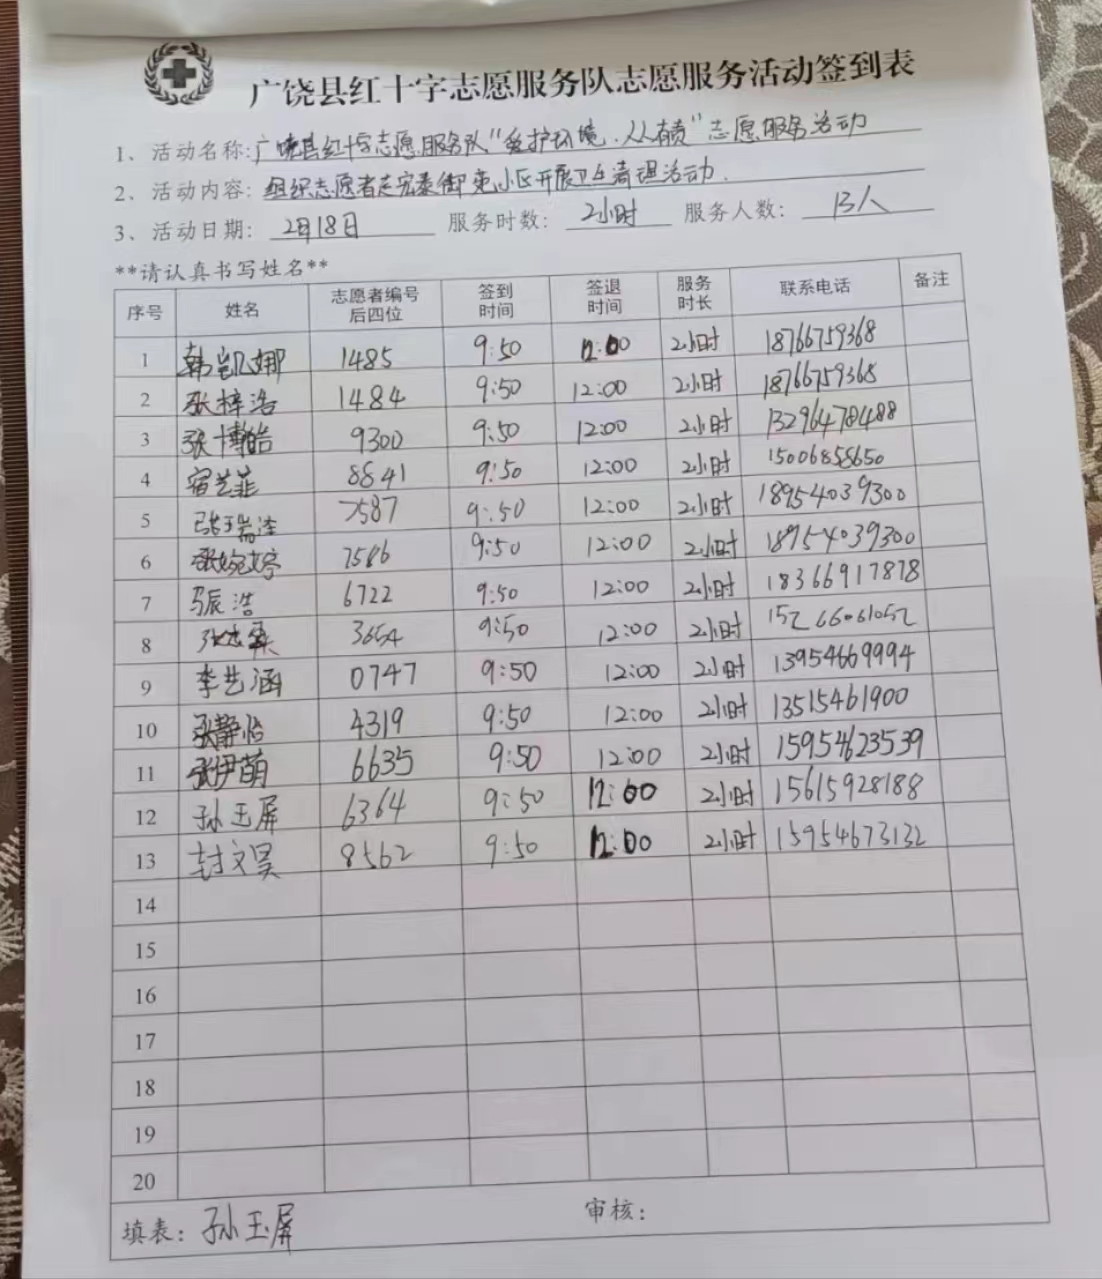 广饶县红十字志愿服务队志愿服务活动签到表
1、活动名称:广饶县红十字志愿服务队"爱护环境,人人有责"志愿服务活动
2、活动内容: 组织志愿者走宪泰御苑小区开展卫生清理活动.
3、活动日期: 2月18日 服务时数: 2小时 服务人数: 13人
**请认真书写姓名**
序号 姓名 志愿者编号后四位 签到时间 签退时间 服务时长 联系电话 备注
1 韩凯娜 1485 9:50 12:00 2小时 18766759368
2 张梓浩 1484 9:50 12:00 2小时 18766759368
3 张博皓 9300 9:50 12:00 2小时 13296478488
4 宿艺菲 8841 9:50 12:00 2小时 15006858650
5 张瑞泽 7587 9:50 12:00 2小时 18954039300
6 张婉婷 7586 9:50 12:00 2小时 18954039300
7 马辰浩 6722 9:50 12:00 2小时 18366917878
8 张志 3654 9:50 12:00 2小时 15266061052
9 李艺涵 0747 9:50 12:00 2小时 13954669994
10 张静怡 4319 9:50 12:00 2小时 13515461900
11 张伊萌 6635 9:50 12:00 2小时 15954623539
12 孙玉屏 6364 9:50 12:00 2小时 15615928188
13 封文昊 8562 9:50 12:00 2小时 15954673132
14
15
16
17
18
19
20
填表: 孙玉屏 审核: